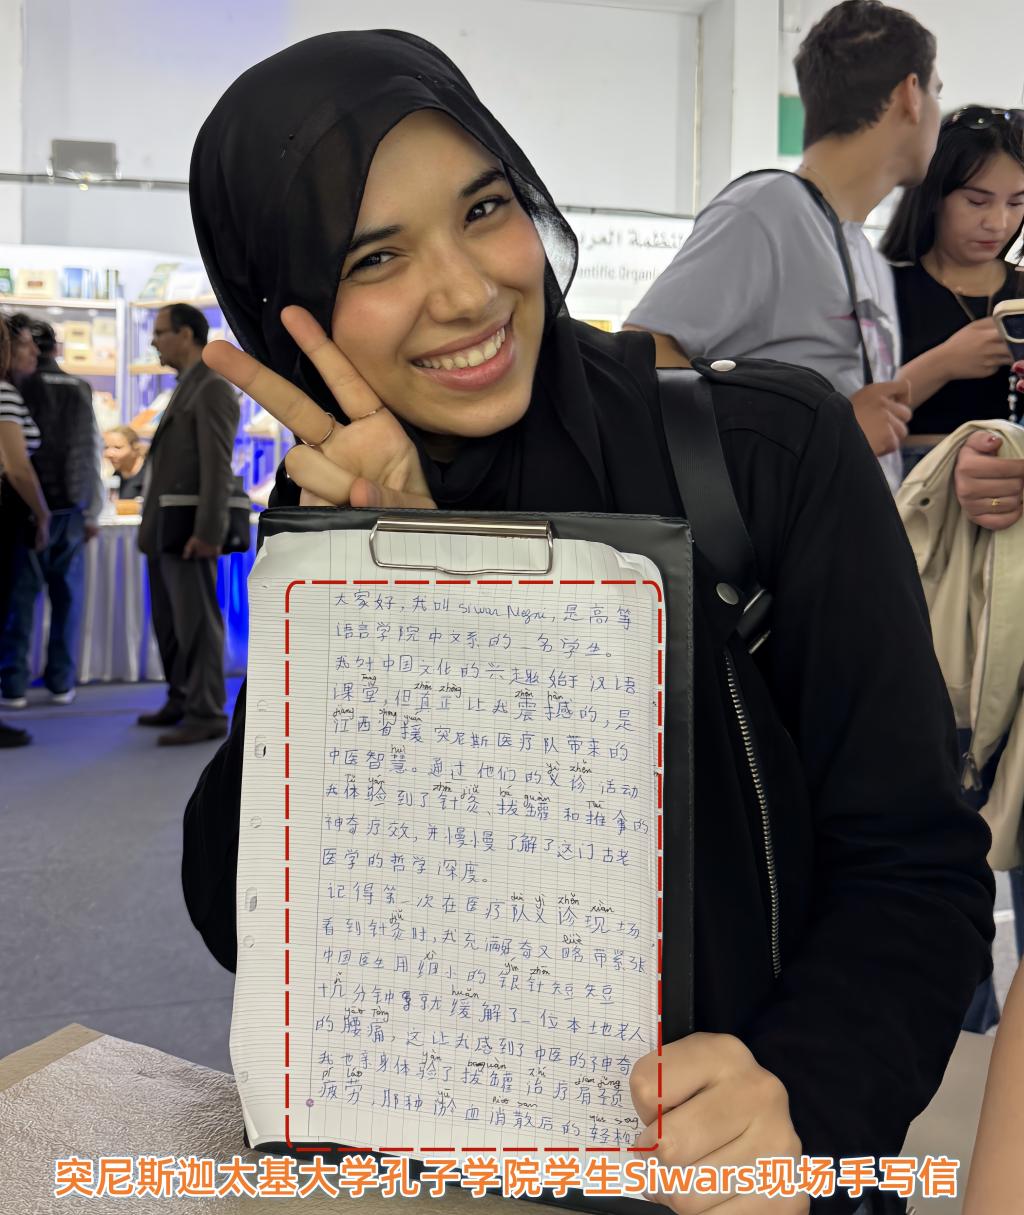 المنظمة العر
entific Organi
大家好，我叫 siwar Negni，是高等
语言学院中文系的一名学生。
我对中国文化的兴趣始于汉语
táng zhēn zhèng zhèn hàn
课堂，但真正让我震撼的，是
jiāng shěng yuán
江西省援突尼斯医疗队带来的
huì yì zhěn
中医智慧。通过他们的义诊活动
tǐ yán zhēn jiǔ bá guàn Tuī
我体验到了针灸、拔罐和推拿的
神奇疗效，并慢慢了解了这门古老
医学的哲学深度。
duì yì zhěn xiàn
记得第一次在医疗队义诊现场，
jiǔ lüè
看到针灸时，我充满好奇又略带紧张
xì yín zhēn
中国医生用细小的银针短短
jǐ huǎn
十几分钟就缓解了一位本地老人
yāo tòng
的腰痛，这让我感到了中医的神奇
yàn báguàn zhì jiān jǐng
我也亲身体验了拔罐治疗肩颈
pí láo yū xiāo sàn qīng sōng
疲劳，那种淤血消散后的轻松
突尼斯迦太基大学孔子学院学生Siwars现场手写信